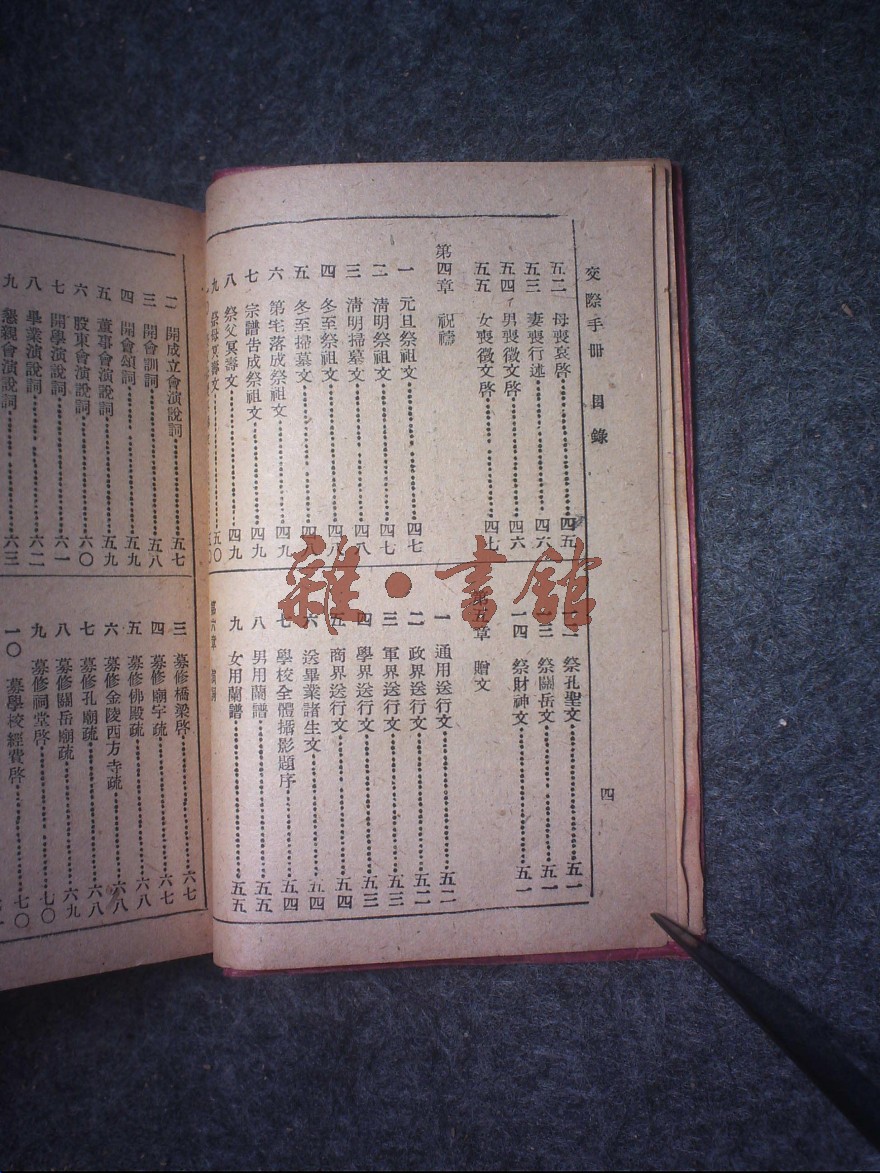 交際手冊 目錄
四
五二 母喪哀啓 四五
五三 妻喪行述 四六
五四 男喪徵文啓 四六
五五 女喪徵文啓 四七
第四章 祝禱
一 元旦祭祖文 四七
二 清明祭祖文 四七
三 清明掃墓文 四八
四 冬至祭祖文 四八
五 冬至掃墓文 四八
六 第宅落成祭祖文 四九
七 宗譜告成祭祖文 四九
八 祭父冥壽文 四九
九 祭母冥壽文 五〇
祭孔聖文 五一
祭關岳文 五一
一四 祭財神文 五一
第五章 贈文
一 通用送行文 五二
二 政界送行文 五二
三 軍界送行文 五三
四 學界送行文 五三
五 商界送行文 五四
六 送畢業諸生文 五四
七 學校全體攝影題序 五四
八 男用蘭譜 五五
九 女用蘭譜 五五
第六章
二 開成立會演說詞 五七
三 開會訓詞 五八
四 開會頌詞 五九
五 董事會演說詞 五九
六 股東會演說詞 六〇
七 開學演說詞 六一
八 畢業演說詞 六二
九 懇親會演說詞 六三
三 募修橋梁啓 六七
四 募修廟宇疏 六七
五 募修佛殿疏 六八
六 募修金陵西方寺疏 六八
七 募修孔廟疏 六八
八 募修關岳廟疏 六九
九 募修祠堂啓 七〇
一〇 募學校經費啓 七〇
雜·書館